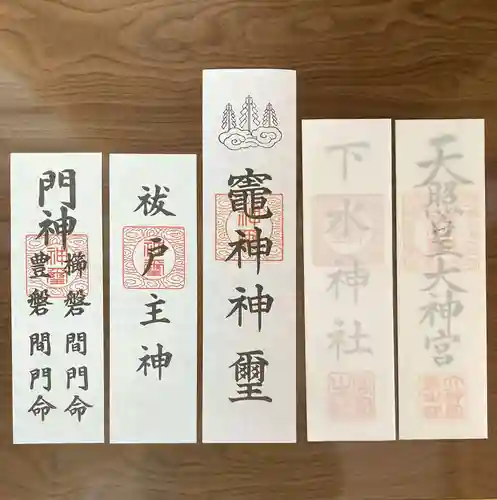 門神
櫛磐間門命
豊磐間門命
祓戸主神
竈神神璽
下水神社
天照皇大神宮